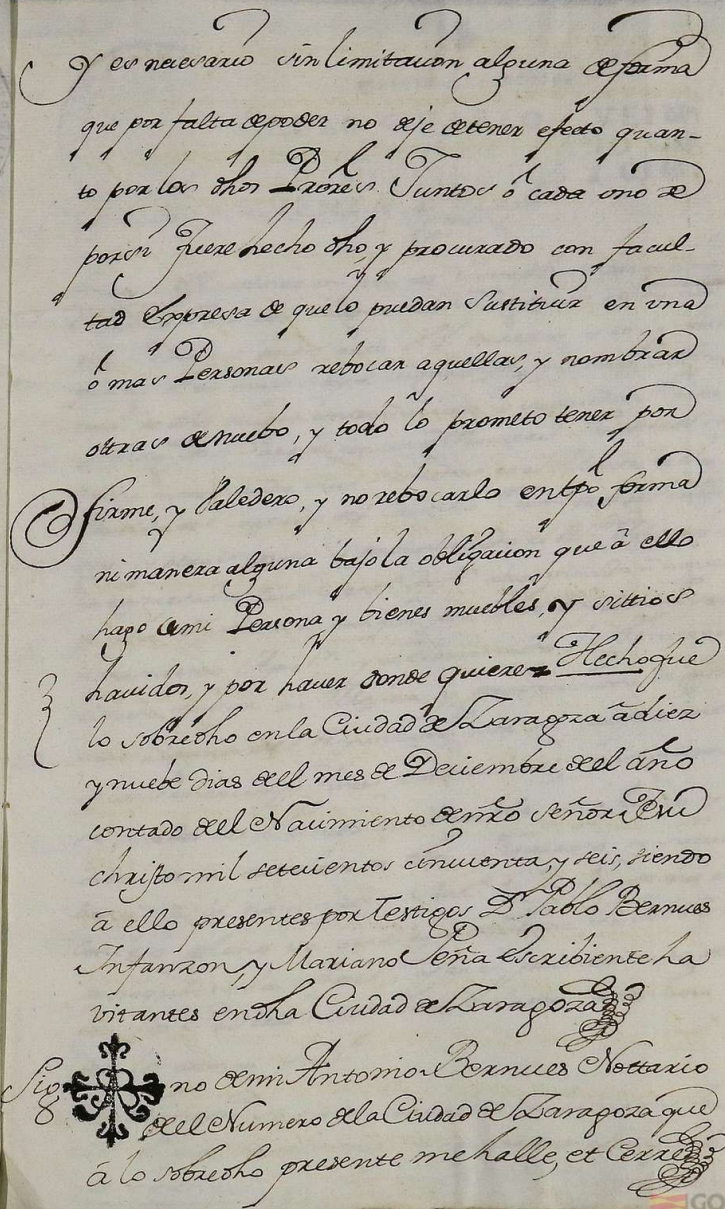 y es necesario sin limitacion alguna de forma
que por falta de poder no deje de tener efecto quan-
to por los dhos Prores. Juntos ô cada uno de
por si fuere hecho dho, y procurado con facul-
tad Expresa de que lo puedan sustituir en una
ô mas Personas rebocar aquellas, y nombrar
otras de nuebo, y todo lo prometo tener por
firme, y Valedero, y no rebocarlo en tpo forma
ni manera alguna bajo la obligacion que â ello
hago de mi Persona y bienes muebles, y sittios
havidos, y por haver donde quiere Hecho fue
lo sobredho en la Ciudad de Zaragoza â diez
y nuebe dias del mes de Deciembre del año
contado del Nacimiento de nro señor Jesu
christo mil setecientos cinquenta, y seis, siendo
â ello presentes por Testigos Dn Pablo Bernues
Infanzon, y Mariano Peña Escribiente ha
vitantes en dha Ciudad de Zaragoza
Sig no de mi Antonio Bernues Nottario
del Numero de la Ciudad de Zaragoza que
â lo sobredho presente me halle, et Cerre